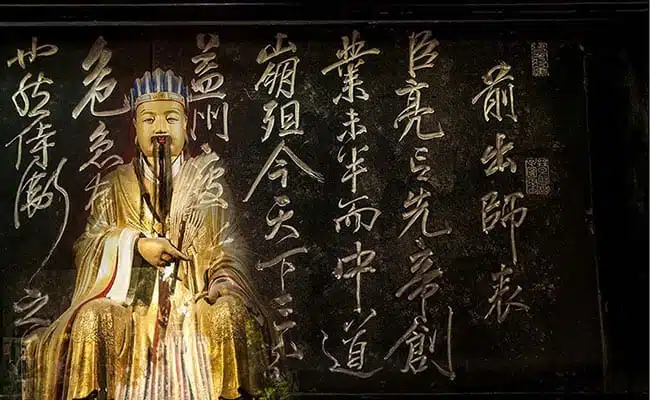 前出師表
臣亮言先帝創
業未半而中道
崩殂今天下三分
益州疲
危急存
也然侍衛之